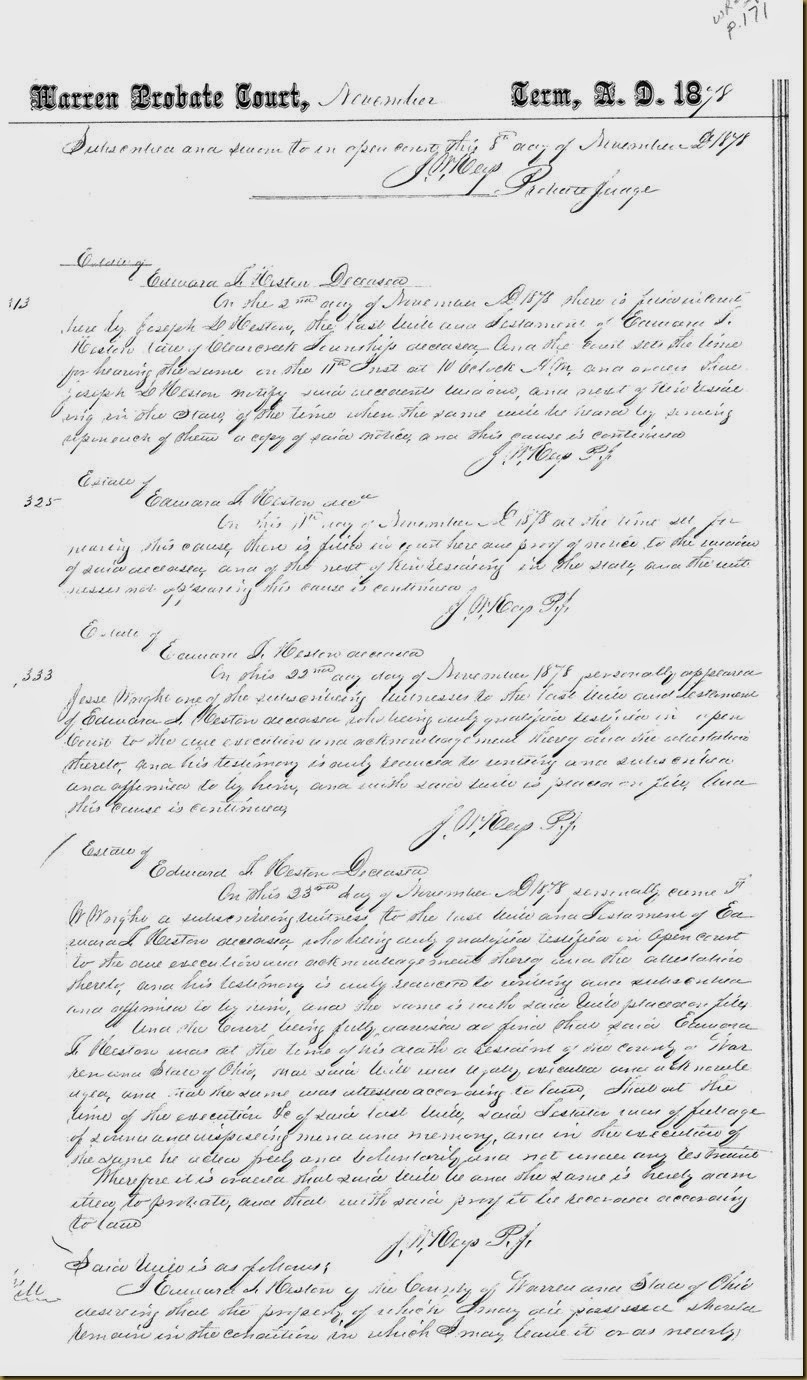 p.171
Warren Probate Court, November Term, A. D. 1878
Subscribed and sworn to in open court this 8th day of November AD 1878
J. W. Keys
Probate Judge
Estate of
Edward T. Heston Deceased
313
On the 2nd day of November AD 1878 there is produced in court
here by Joseph D Heston, the last Will and Testament of Edward T.
Heston late of Clearcreek Township deceased And the court sets the time
for hearing the same on the 11th Inst at 10 Oclock A.M. and orders that
Joseph D Heston notify said decedents widow, and next of Kin resid
ing in the State, of the time when the same will be heard by serving
upon each of them a copy of said notice, and this cause is continued
J. W. Keys P.J.
Estate of
Edward T. Heston decd
325
On this 11th day of November AD 1878 at the time set for
hearing this cause, there is filed in court here due proof of notice to the widow
of said deceased, and of the next of Kin residing in the state, and the wit
nesses not appearing this cause is continued
J. W. Keys P.J.
Estate of
Edward T. Heston deceased
333
On this 22nd day day of November 1878 personally appeared
Jesse Wright one of the subscribing witnesses to the last Will and testament
of Edward T. Heston deceased who being duly qualified testified in open
Court to the due execution and acknowledgement thereof and the attestation
thereto, and his testimony is duly reduced to writing and subscribed
and affirmed to by him, and with said Will is placed on file, And
this cause is continued,
J. W. Keys P.J.
Estate of
Edward T. Heston Deceased
On this 23rd day of November AD 1878 personally came
W Wright a subscribing witness to the last Will and Testament of Ed
ward T. Heston deceased, who being duly qualified testified in open court
to the due execution and acknowledgement thereof and the attestation
thereto, and his testimony is duly reduced to writing and subscribed
and affirmed to by him, and the same is with said Will placed on file,
And the Court being fully advised do find that said Edward
T. Heston was at the time of his death a resident of the county of War
ren and State of Ohio, that said Will was legally executed and acknowle
dged, and that the same was attested according to law, That at the
time of the execution &c of said last Will, said Testator was of full age
of sound and disposeing mind and memory, and in the execution of
the same he acted freely and voluntarily and not under any restraint
Wherefore it is ordered that said Will be and the same is hereby adm
itted to probate, and that with said proof it be recorded according
to law
J. W. Keys P.J.
Said Will is as follows;
Will
I Edward T. Heston of the County of Warren and State of Ohio
desireing that the property of which I may die possessed should
remain in the condition in which I may leave it or as nearly